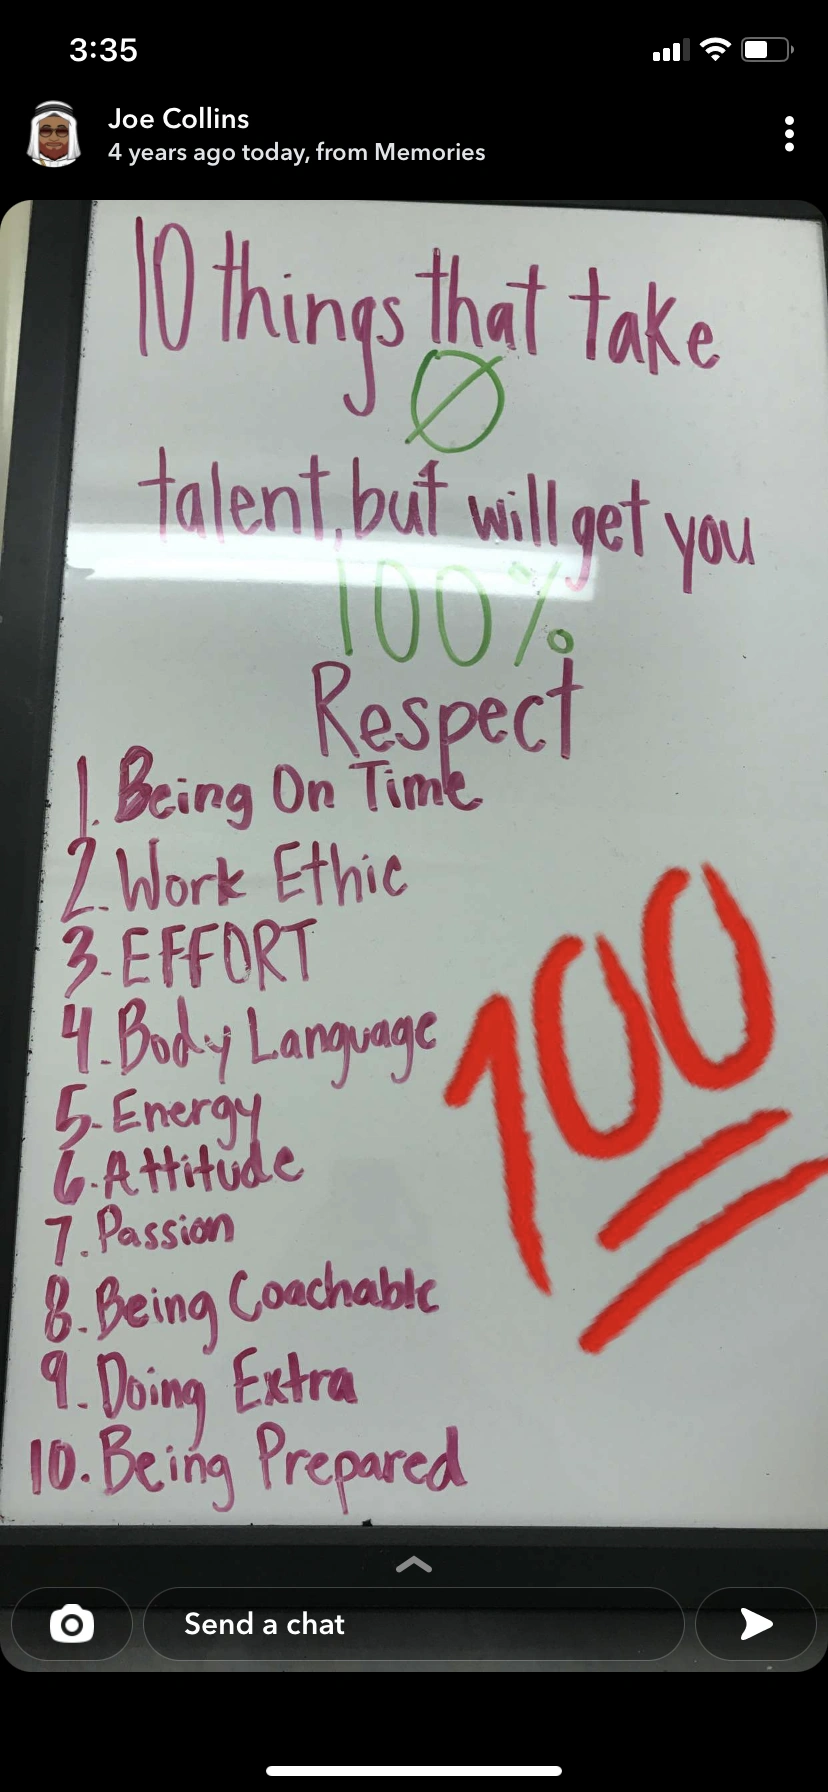 3:35
Joe Collins
4 years ago today, from Memories
10 things that take
Ø
talent, but will get you
100%
Respect
1. Being On Time
2. Work Ethic
3. EFFORT
4. Body Language
5. Energy
6. Attitude
7. Passion
8. Being Coachable
9. Doing Extra
10. Being Prepared
100
Send a chat